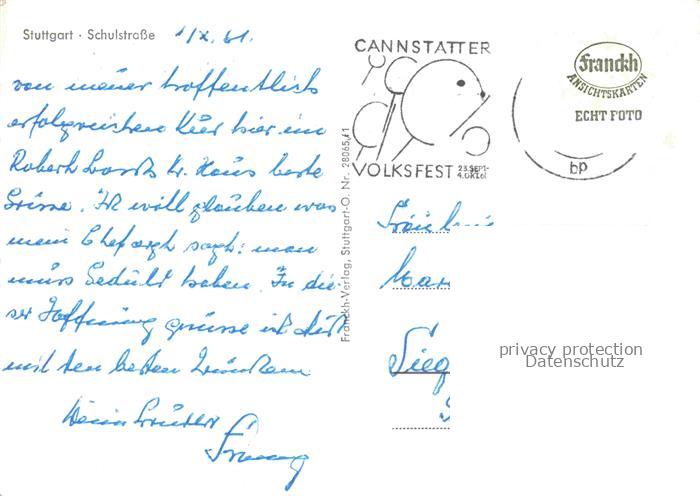 Stuttgart · Schulstraße 1/X. 61.
von meiner hoffentlich
erfolgreichen Kur hier im
Robert Kr. Haus beste
Grüsse. Ich will glauben was
mein Chefarzt sagt: man
muss Geduld haben. In die-
ser Hoffnung grüsse ich dich
mit den besten Wünschen
Dein Bruder
Franckh-Verlag, Stuttgart-O. Nr. 28065/1
CANNSTATTER
VOLKSFEST 23.SEPT-
4.OKT.61
Franckh
ANSICHTSKARTEN
ECHT FOTO
bp
Fräulein
Mar
Sieg
privacy protection
Datenschutz